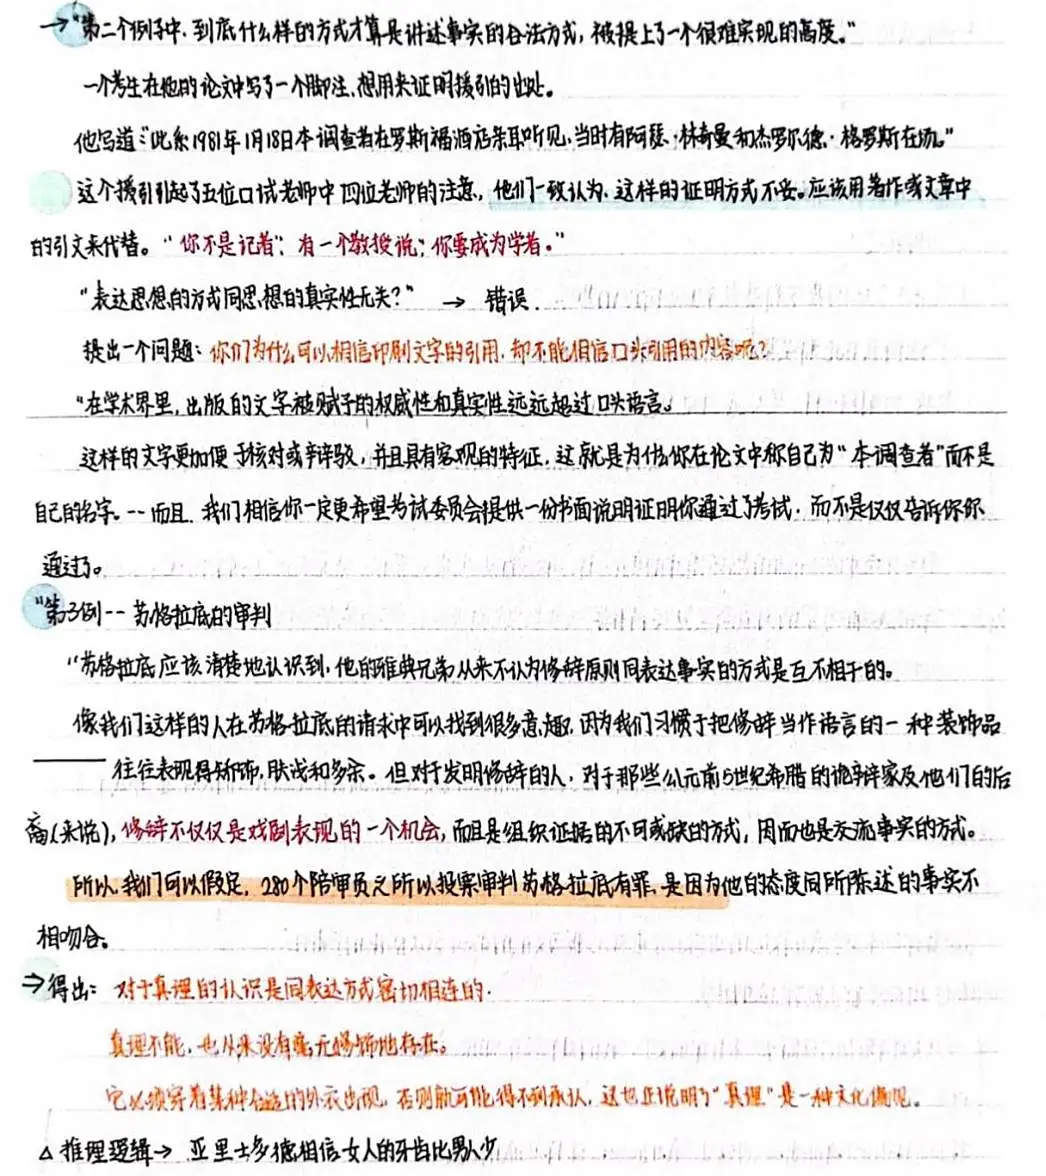 →"第二个例子中,到底什么样的方式才算是讲述事实的合法方式,被提上了一个很难实现的高度。"
一个考生在他的论文中写了一个脚注,想用来证明援引的出处。
他写道:"此系1981年1月18日本调查者在罗斯福酒店亲耳听见,当时有阿瑟·林奇曼和杰罗尔德·格罗斯在场。"
这个援引引起了五位口试老师中四位老师的注意,他们一致认为,这样的证明方式不妥。应该用著作或文章中
的引文来代替。"你不是记者",有一个教授说;"你要成为学者。"
"表达思想的方式同思想的真实性无关?" → 错误.
提出一个问题:你们为什么可以相信印刷文字的引用,却不能相信口头引用的内容呢?
"在学术界里,出版的文字被赋予的权威性和真实性远远超过口头语言。
这样的文字更加便于核对或辩驳,并且具有客观的特征,这就是为什么你在论文中称自己为"本调查者"而不是
自己的名字。--而且,我们相信你一定更希望考试委员会提供一份书面说明证明你通过了考试,而不是仅仅告诉你你
通过了。
"第3例--苏格拉底的审判
"苏格拉底应该清楚地认识到,他的雅典兄弟从来不认为修辞原则同表达事实的方式是互不相干的。
像我们这样的人在苏格拉底的请求中可以找到很多意趣,因为我们习惯于把修辞当作语言的一种装饰品
——往往表现得矫饰,肤浅和多余。但对于发明修辞的人,对于那些公元前5世纪希腊的诡辩家及他们的后
裔(来说),修辞不仅仅是戏剧表现的一个机会,而且是组织证据的不可或缺的方式,因而也是交流事实的方式。
所以,我们可以假定,280个陪审员之所以投票审判苏格拉底有罪,是因为他的态度同所陈述的事实不
相吻合。
→得出:对于真理的认识是同表达方式密切相连的.
真理不能,也从来没有毫无修饰地存在。
它必须穿着某种合适的外衣出现,否则就可能得不到承认,这也正说明了"真理"是一种文化偏见。
△推理逻辑→ 亚里士多德相信女人的牙齿比男人少